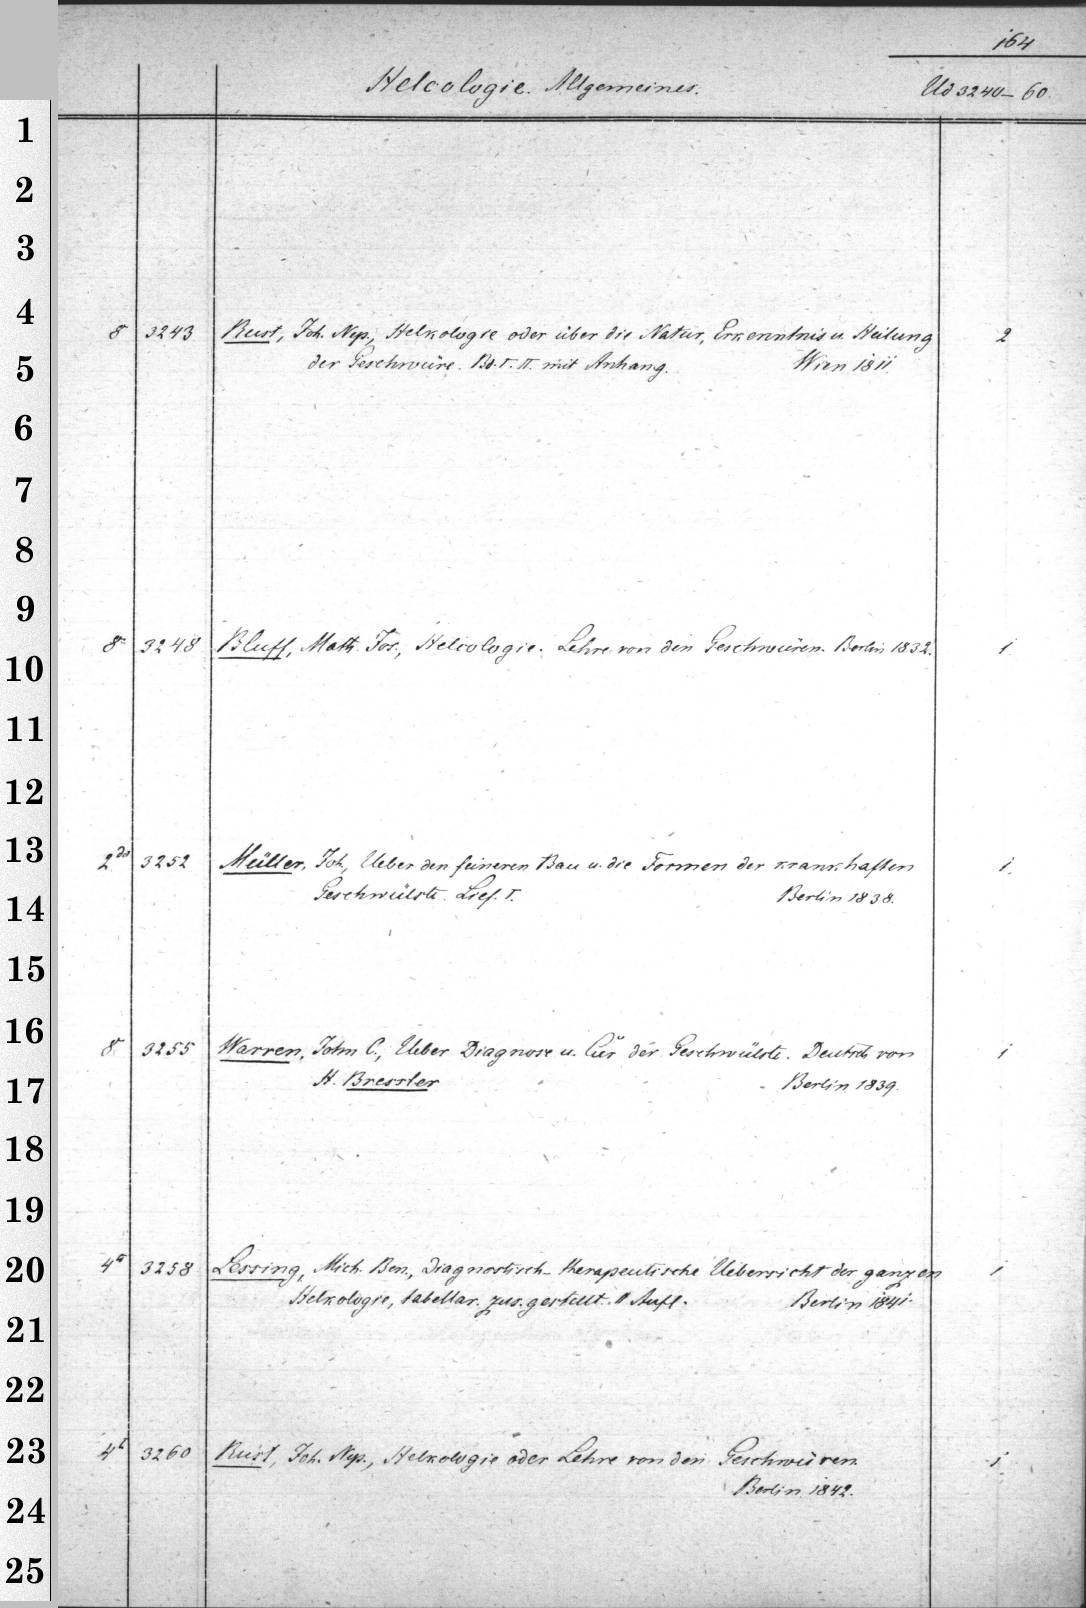 164
Helcologie. Allgemeines. Ud 3240-60.
1
2
3
4
8 3243 Rust, Joh. Nep., Helkologie oder über die Natur, Erkenntnis u. Heilung 2
der Geschwüre. Bd. I. II. mit Anhang. Wien 1811.
5
6
7
8
9
8° 3248 Bluff, Math. Jos., Helcologie. Lehre von den Geschwüren. Berlin 1832. 1
10
11
12
13
2do 3252 Müller, Joh., Ueber den feineren Bau u. die Formen der krankhaften 1.
14
Geschwülste. Lief. I. Berlin 1838.
15
16
8° 3255 Warren, John C., Ueber Diagnose u. Cur der Geschwülste. Deutsch von 1
17
H. Bressler Berlin 1839.
18
19
20
4° 3258 Lessing, Mich. Ben., Diagnostisch-therapeutische Uebersicht der ganzen 1
Helkologie, tabellar. zus. gestellt. II Aufl. Berlin 1841.
21
22
23
4° 3260 Rust, Joh. Nep., Helkologie oder Lehre von den Geschwüren 1.
Berlin 1842.
24
25